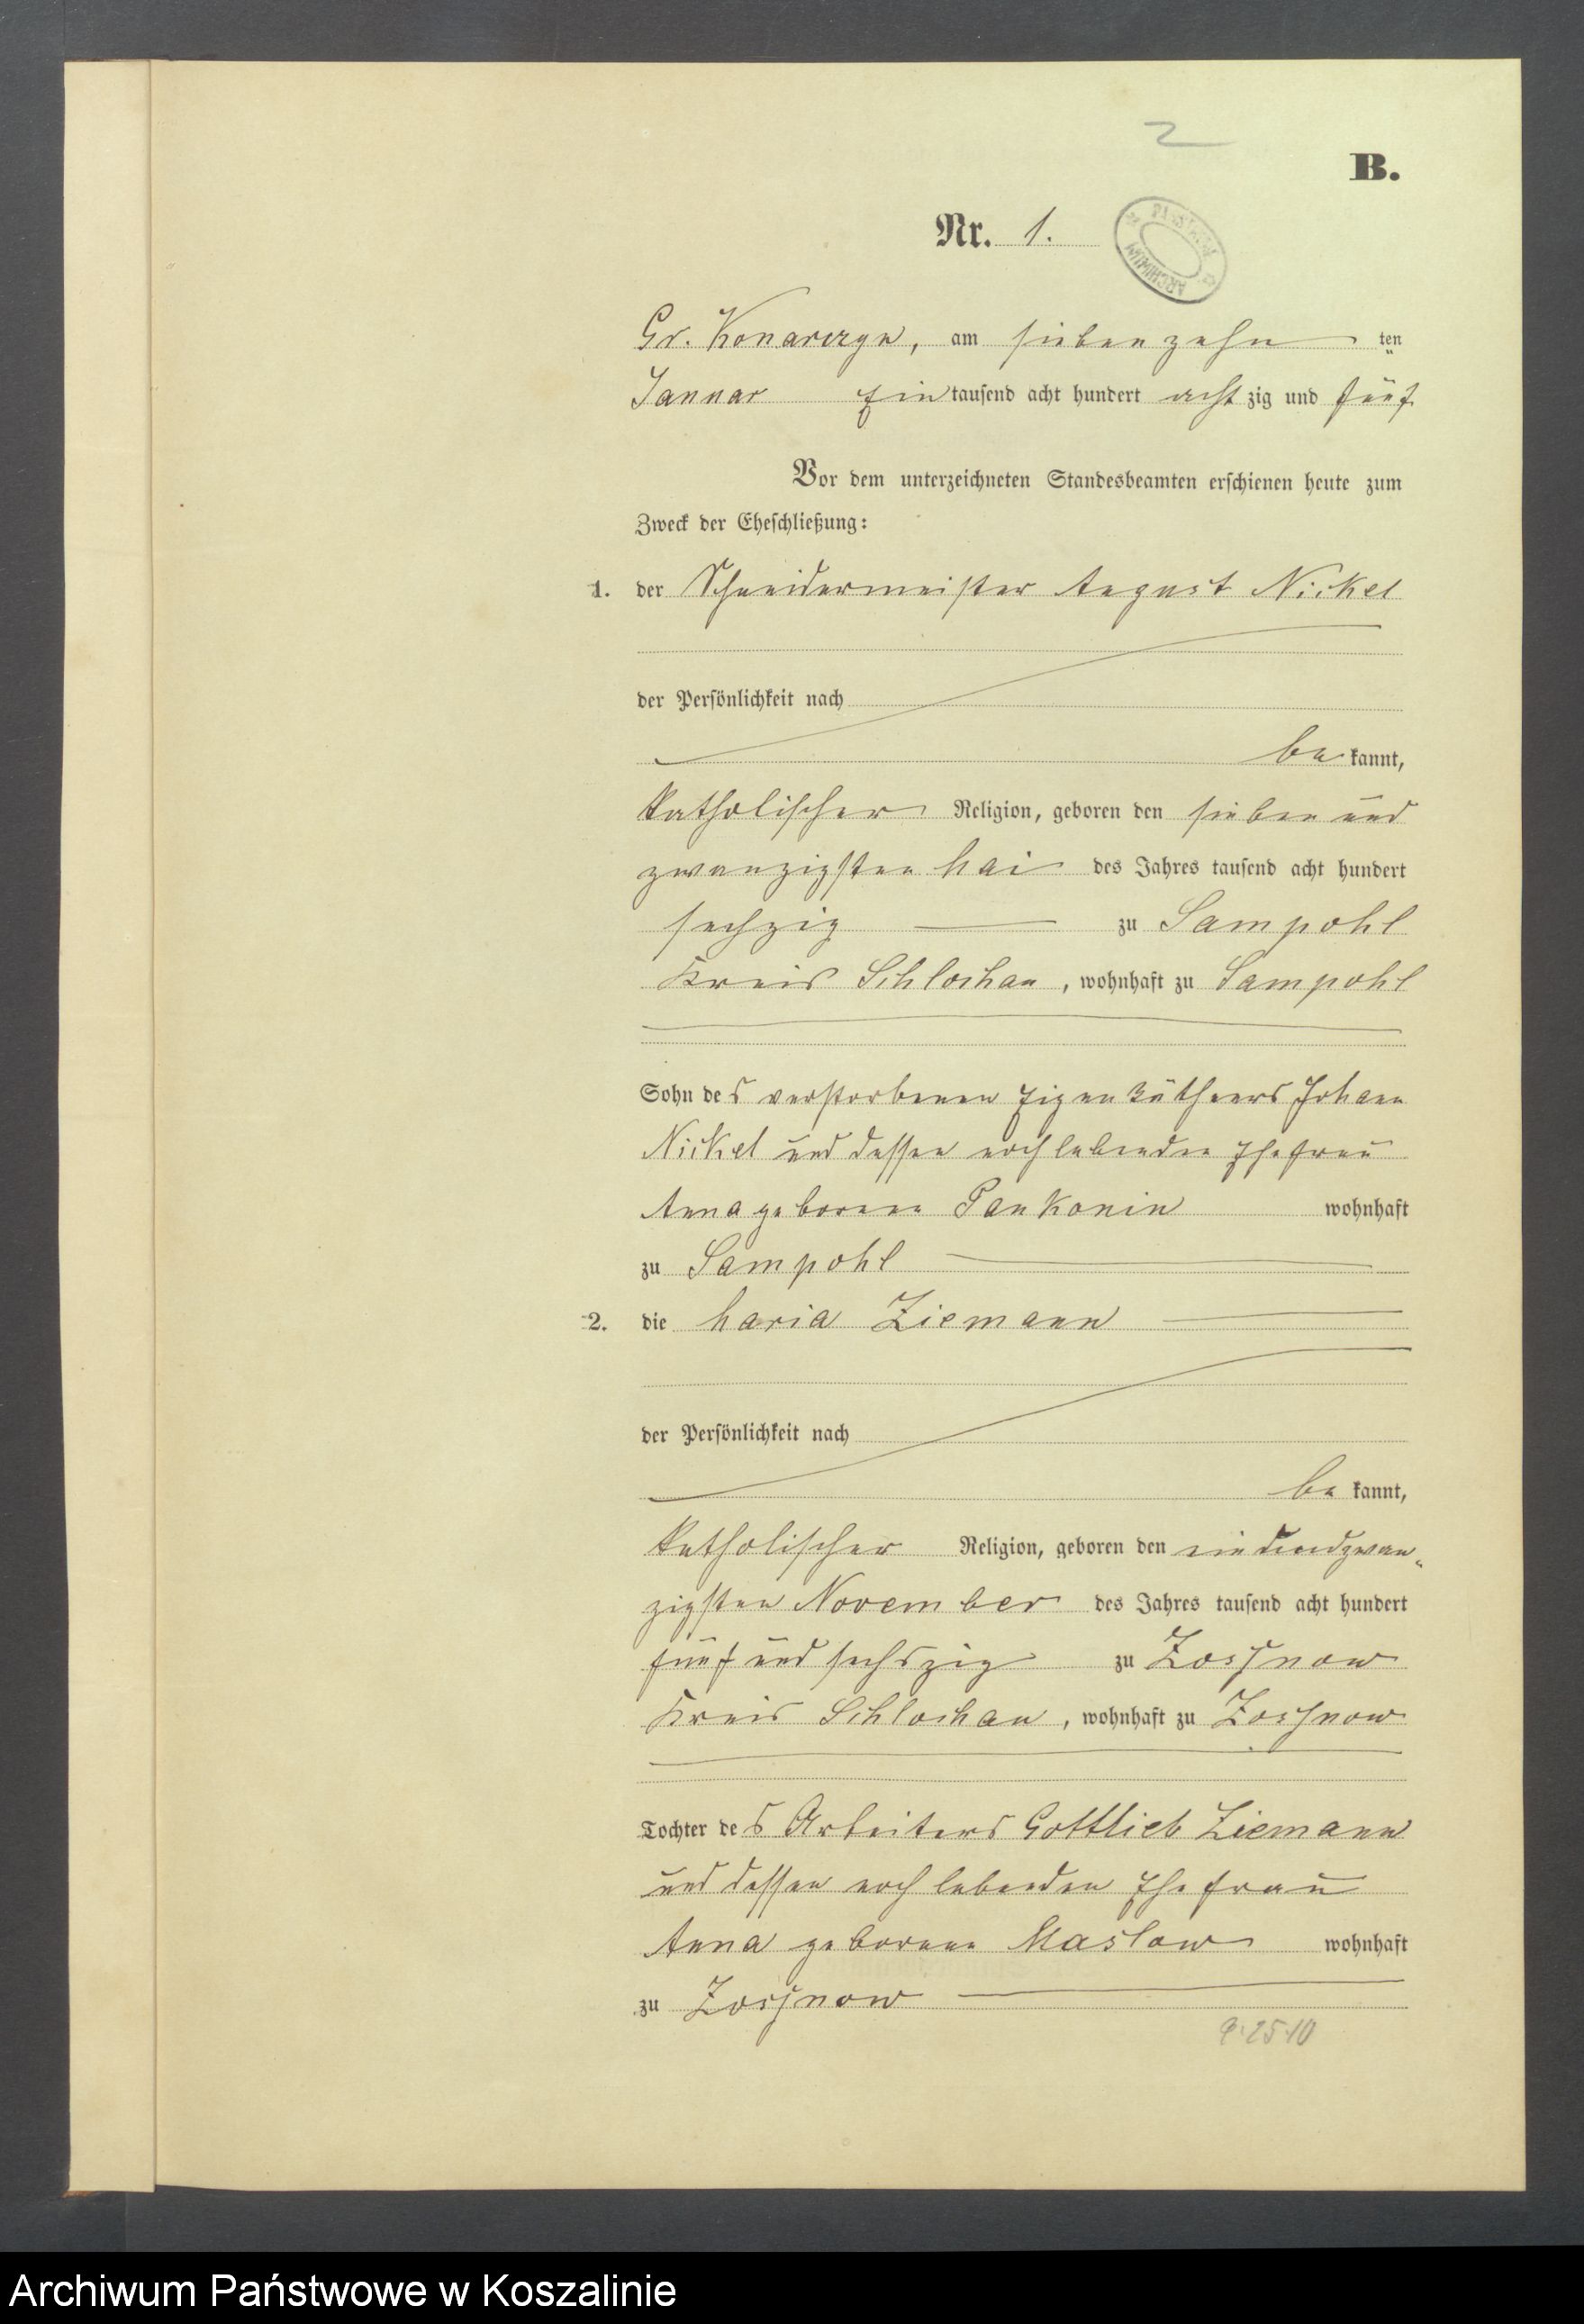 2
B.
Nr. 1.
ARCHIWUM PAŃSTWOWE
Gr. Konarczyn, am siebenzehn ten
Januar Ein tausend acht hundert acht zig und fünf
Vor dem unterzeichneten Standesbeamten erschienen heute zum
Zweck der Eheschließung:
1. der Schneidermeister August Nickel
der Persönlichkeit nach
be kannt,
katholischer Religion, geboren den sieben und
zwanzigsten Mai des Jahres tausend acht hundert
sechzig zu Sampohl
Kreis Schlochau, wohnhaft zu Sampohl
Sohn des verstorbenen Eigenkäthners Johann
Nickel und dessen noch lebenden Ehefrau
Anna geborene Pankonin wohnhaft
zu Sampohl
2. die Maria Ziemann
der Persönlichkeit nach
be kannt,
katholischer Religion, geboren den ein und zwan„
zigsten November des Jahres tausend acht hundert
fünf und sechszig zu Zossnow
Kreis Schlochau, wohnhaft zu Zossnow
Tochter des Arbeiters Gottlieb Ziemann
und dessen noch lebenden Ehefrau
Anna geborene Maslow wohnhaft
zu Zossnow
Archiwum Państwowe w Koszalinie